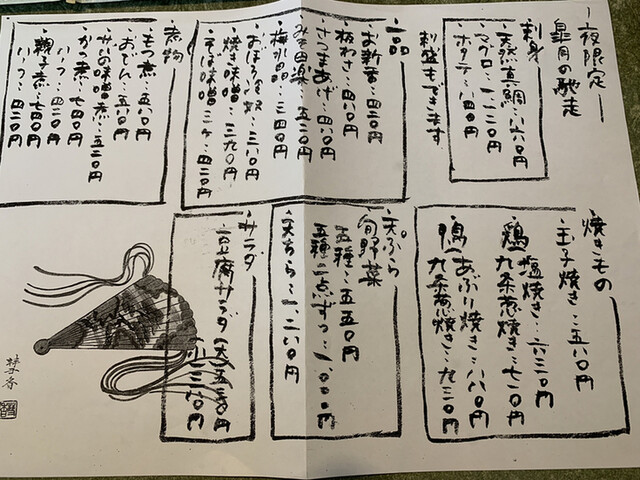 ―夜限定―
皐月の馳走
刺身
・天然真鯛・八六〇円
・マグロ・・一、一二〇円
・ホタテ・・八四〇円
刺盛もできます
一品
・お新香・・四二〇円
・板わさ・・四八〇円
・さつまあげ・四八〇円
・みそ田楽・・五二〇円
・梅水晶・・三四〇円
・おぼろ冷奴・・三六〇円
・焼き味噌・・三九〇円
・そば味噌・・四二〇円
煮物
・もつ煮・・五八〇円
・おでん・・五八〇円
・さばの味噌煮・・五二〇円
・かつ煮・・七四〇円
ハーフ・・四二〇円
・親子煮・・七四〇円
ハーフ・・四二〇円
焼きもの
・玉子焼き・・五八〇円
・鶏
塩焼き・・六三〇円
九条葱焼き・・七一〇円
・鴨
あぶり焼き・・八八〇円
九条葱焼き・・九三〇円
天ぷら
・旬野菜
五種・・五五〇円
五種二点ずつ・・一、〇〇〇円
・天ちら・・一、二八〇円
サラダ
・豆腐サラダ
大 五三〇円
小 三三〇円